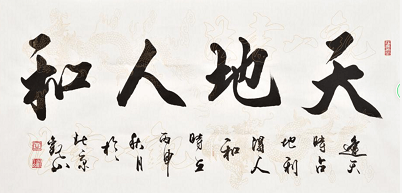 天地人和
逢天
時占
地利
得人
和
時在
丙申
秋月
於
北京